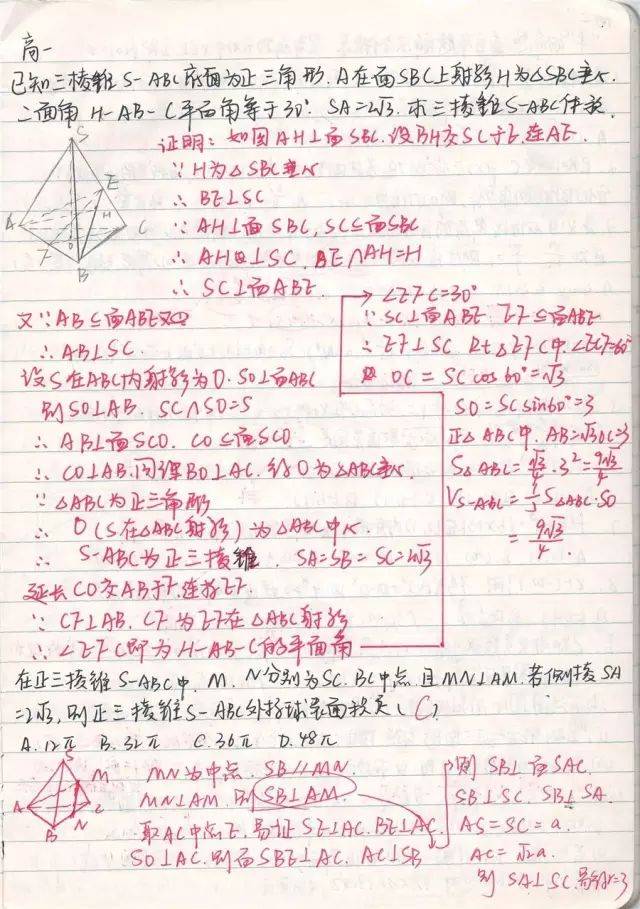 高一
已知三棱锥 S-ABC 底面为正三角形. A在面SBC上射影H为△SBC垂心.
二面角 H-AB-C 平面角等于30°. SA=2√3. 求三棱锥S-ABC体积.
证明: 如图 AH⊥面SBC. 设BH交SC于E. 连AE.
∵ H为△SBC垂心
∴ BE⊥SC
∵ AH⊥面SBC, SC⊆面SBC
∴ AH⊥SC. BE∩AH=H
∴ SC⊥面ABE.
S
E
A
H
C
F
O
B
又∵AB⊆面ABE
∴ AB⊥SC.
设S在ABC内射影为O. SO⊥面ABC
则SO⊥AB. SC∩SO=S
∴ AB⊥面SCO. CO⊆面SCO
∴ CO⊥AB. 同理BO⊥AC. 故O为△ABC垂心.
∵ △ABC为正三角形
∴ O(S在△ABC射影)为△ABC中心.
∴ S-ABC为正三棱锥. SA=SB=SC=2√3
延长CO交AB于F. 连接EF.
∵ CF⊥AB. CF为EF在△ABC射影
∴ ∠EFC即为H-AB-C的平面角
∠EFC=30°
∵ SC⊥面ABE. EF⊆面ABE
∴ EF⊥SC. Rt△EFC中. ∠ECF=60°
OC=SCcos60°=√3
SO=SCsin60°=3
正△ABC中. AB=√3OC=3
S△ABC=√3/4·3²=9√3/4
VS-ABC=1/3S△ABC·SO
=9√3/4.
在正三棱锥S-ABC中. M、N分别为SC. BC中点. 且MN⊥AM. 若侧棱SA
=2√3, 则正三棱锥S-ABC外接球表面积是(C)
A.12π B.32π C.36π D.48π
S
M
A
C
N
B
MN为中点. SB//MN.
MN⊥AM. 则SB⊥AM.
取AC中点E. 易证SE⊥AC. BE⊥AC.
SO⊥AC. 则面SBE⊥AC. AC⊥SB
则SB⊥面SAC.
SB⊥SC. SB⊥SA.
AS=SC=a.
AC=√2a.
则 SA⊥SC.